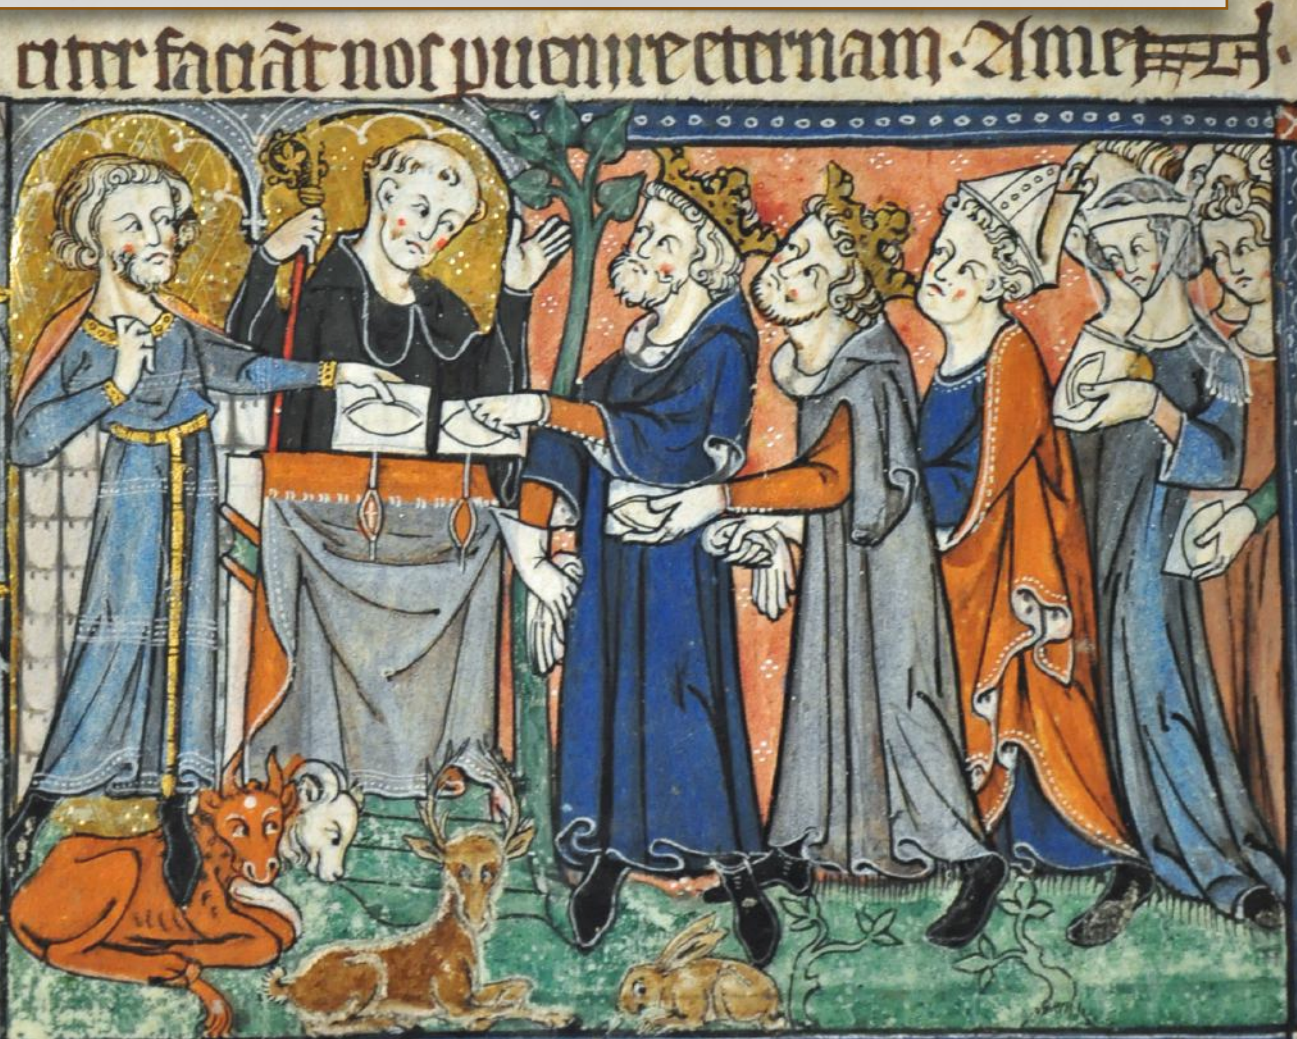 citer faciāt nos puenire eternam · Amen.